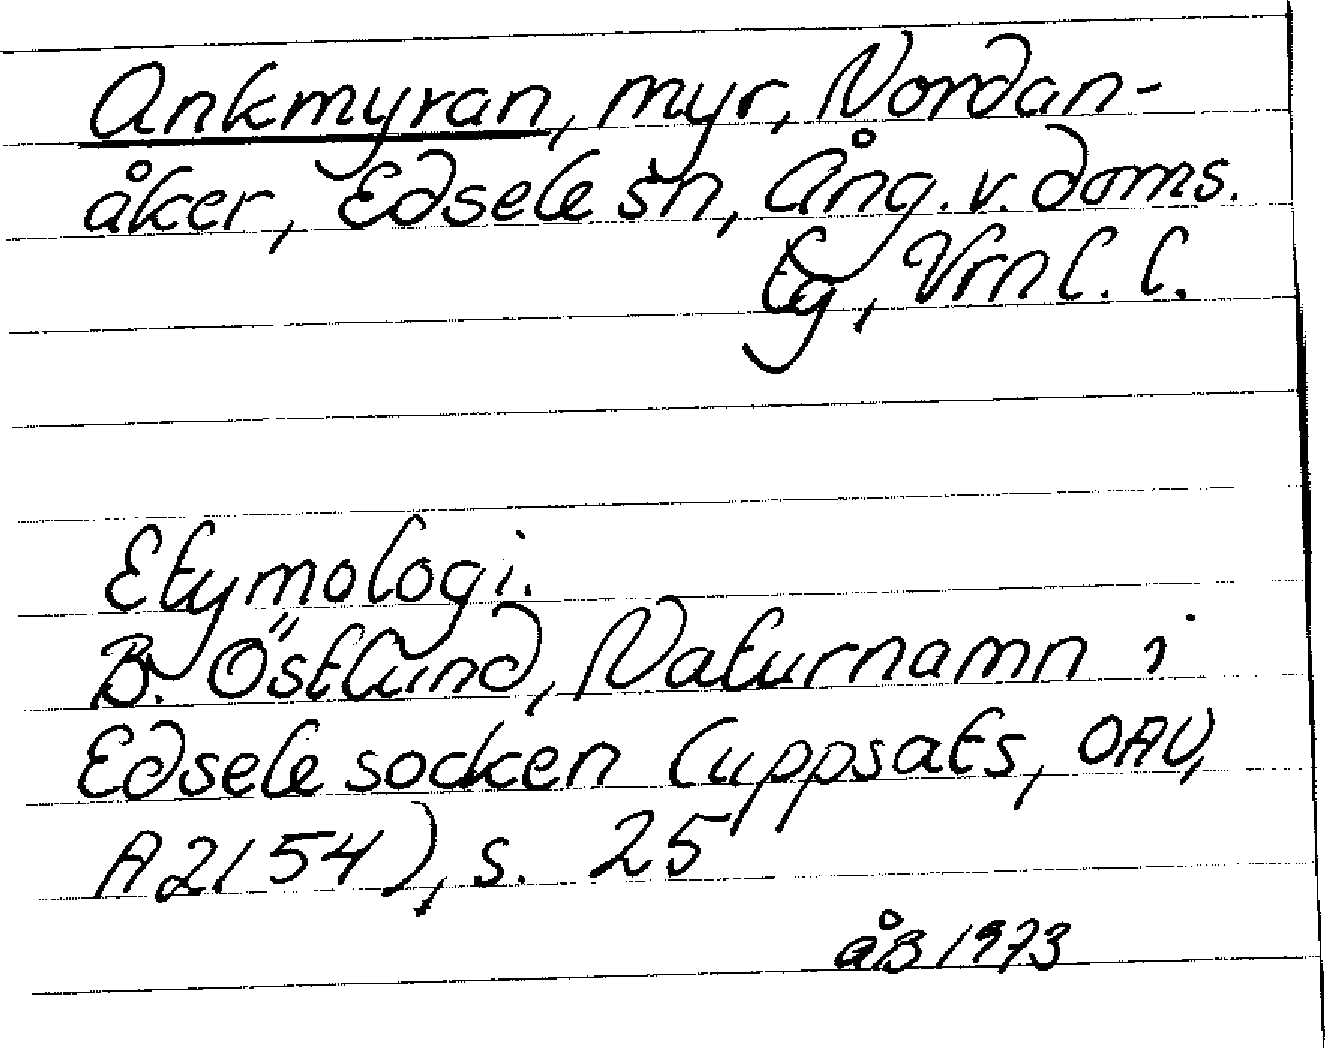 Ankmyran, myr, Nordan-
åker, Edsele sn, Ång. v. doms.
tg, Vrnl. l.
Etymologi.
B. Östlund, Naturnamn i
Edsele socken (uppsats, OAU,
A2154), s. 25
åB 1973